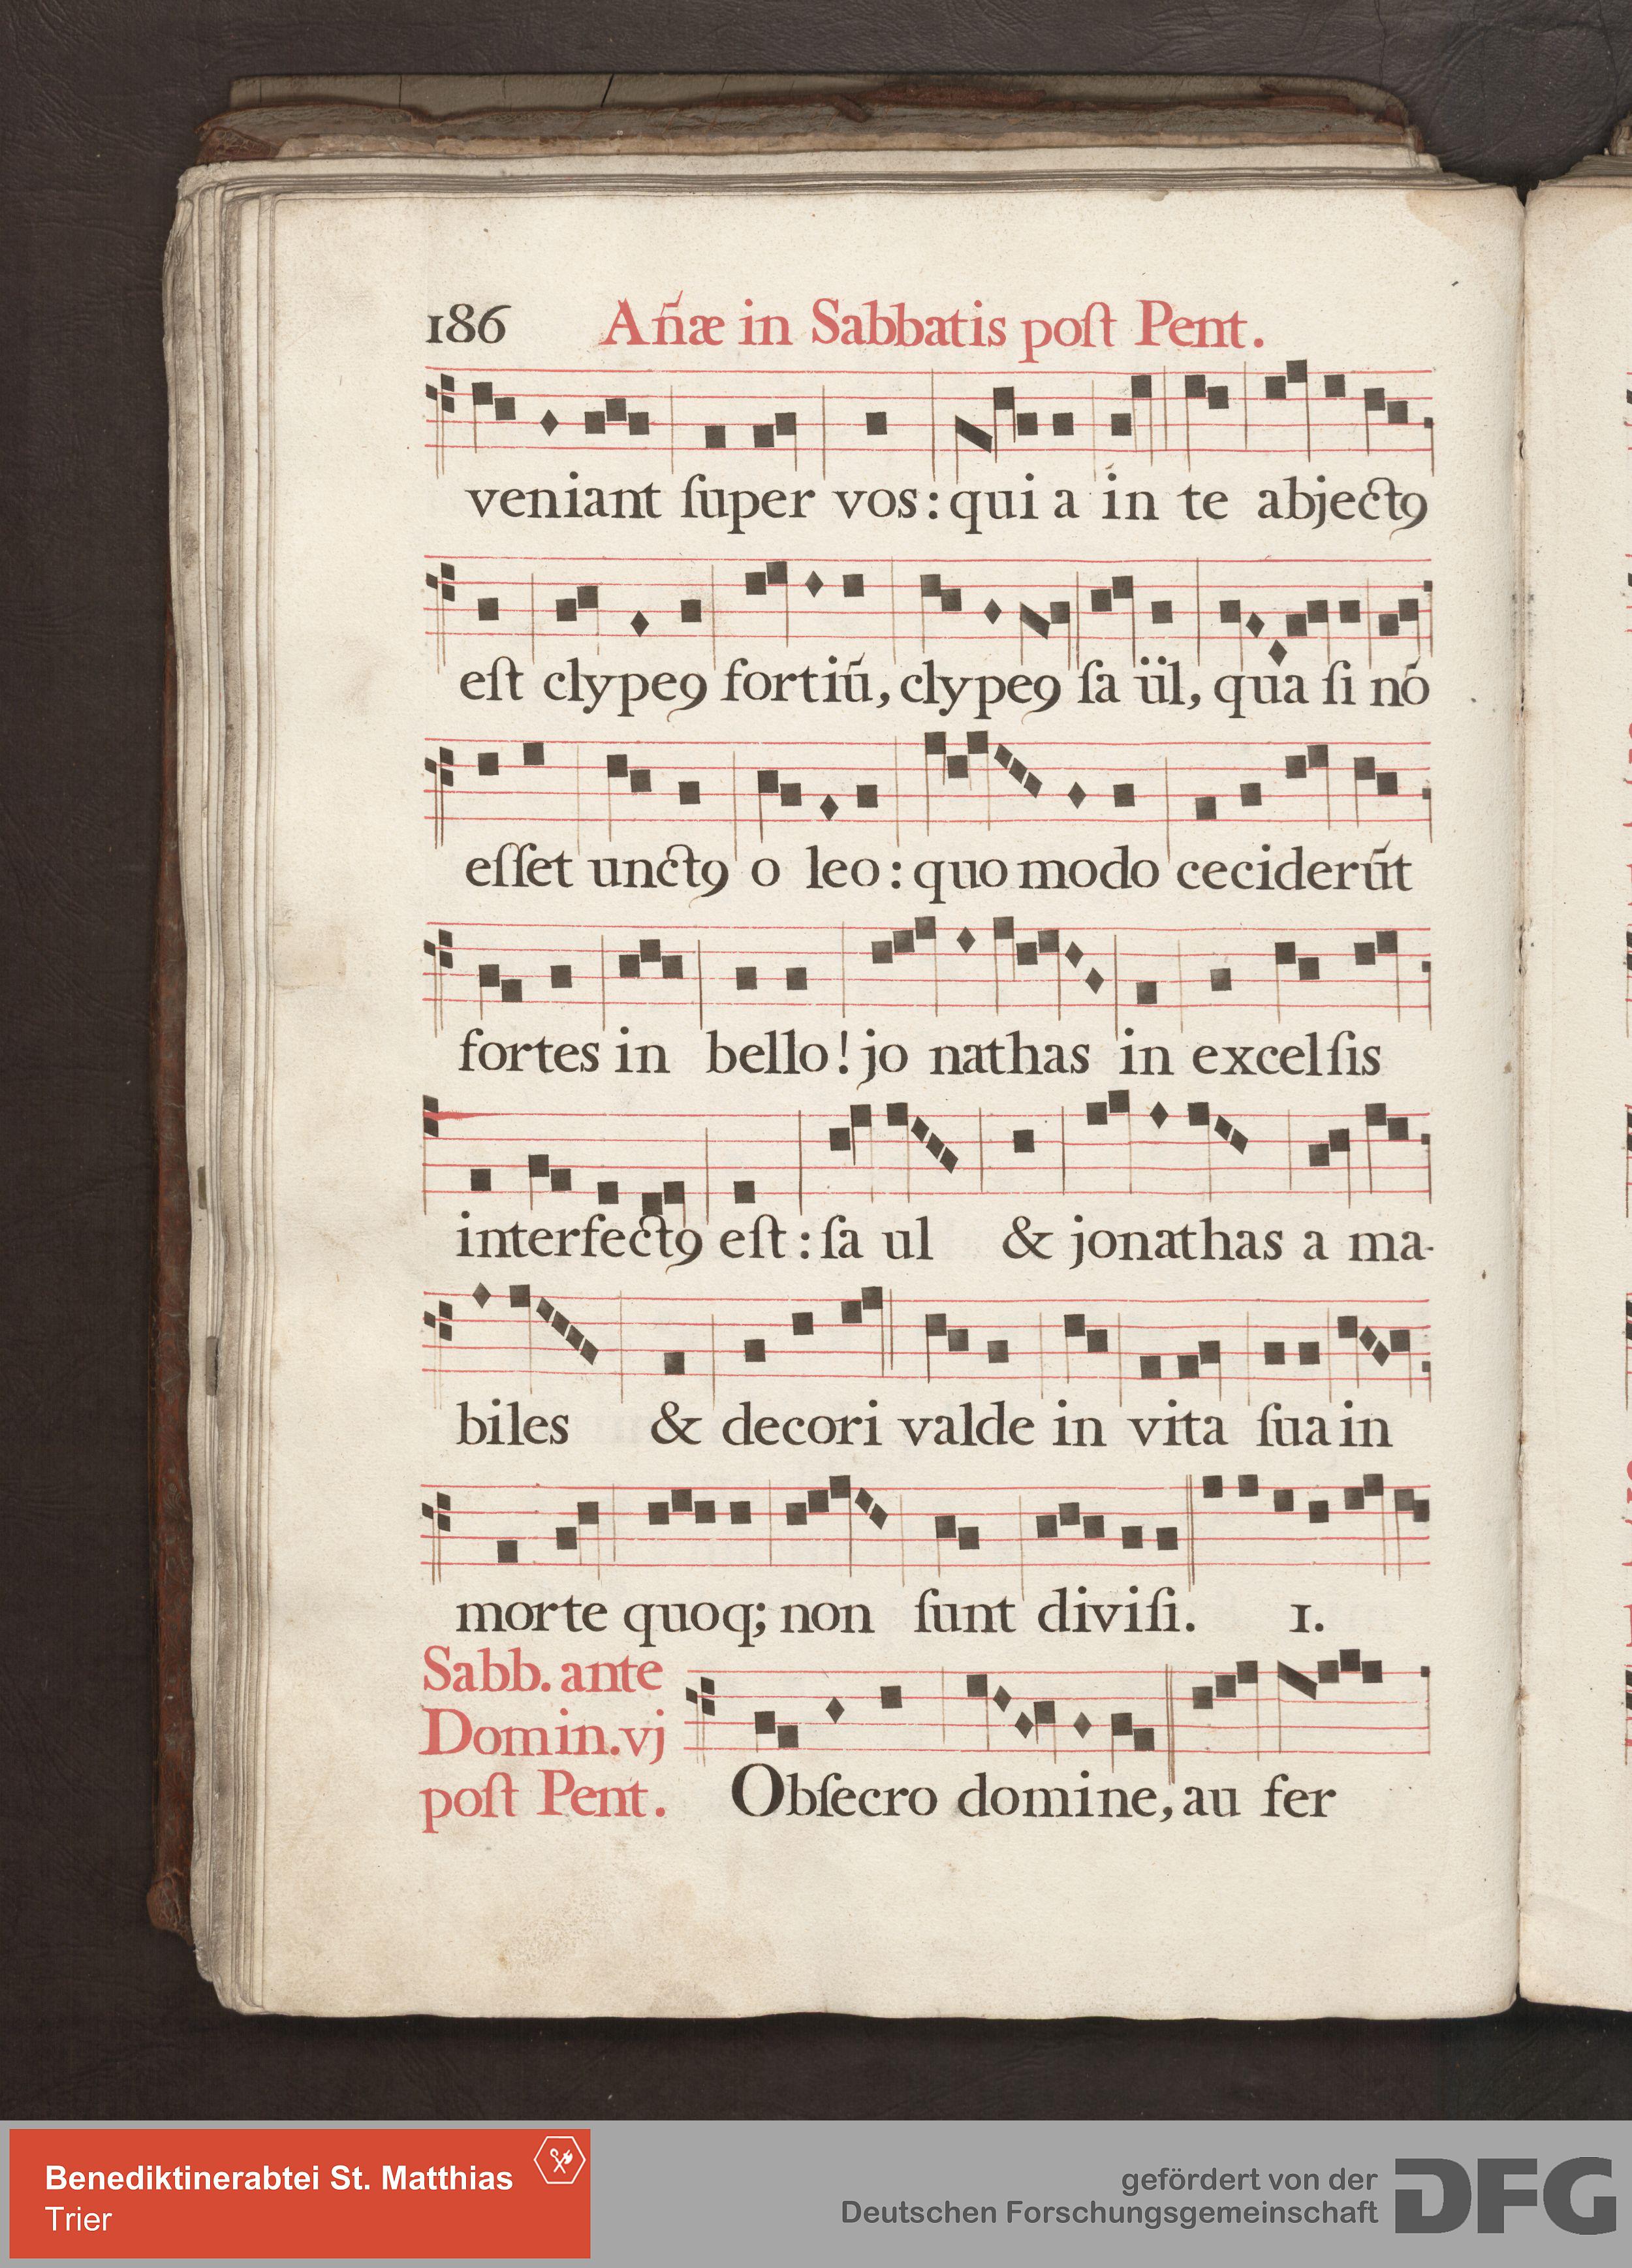 186 Añæ in Sabbatis poſt Pent.
veniant ſuper vos: qui a in te abjectꝯ
eſt clypeꝯ fortiū, clypeꝯ ſa ül, qua ſi nō
eſſet unctꝯ o leo: quo modo ceciderūt
fortes in bello! jo nathas in excelſis
interfectꝯ eſt: ſa ul & jonathas a ma-
biles & decori valde in vita ſua in
morte quoq; non ſunt diviſi. 1.
Sabb. ante
Domin. vj
poſt Pent.
Obſecro domine, au fer
Benediktinerabtei St. Matthias
Trier
gefördert von der
Deutschen Forschungsgemeinschaft
DFG